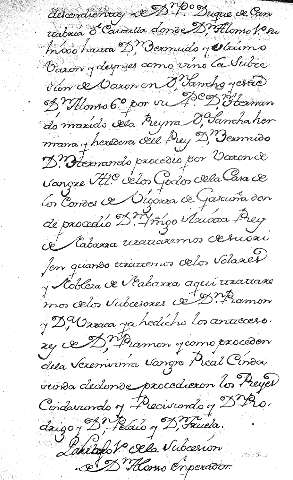 descendientes de Dn Po Duque de Can
tabria o Cantabria donde Dn Alonso 1o
hasta Dn Bermudo y ultimo
Varon y despues como vino la Subce
sion de Varon en Dn Sancho y este
Dn Alonso 6o por su Pe Dn Fernan
do marido de la Reyna Da Sancha her
mana y heredera del Rey Dn Bermudo
Dn Hernando procedio por Varon de
Sangre Rl de los Godos de la Casa de
los Condes de Vigorra de Gascuña don
de procedio Dn Yñigo Arista Rey
de Nabarra trataremos de su ori
jen quando tratemos de los Solares
y Nobleza de Nabarra aqui tratare
mos de los Subcesores de Dn Ramon
y Da Urraca ya hè dicho los anteceso
res de Dn Ramon y como proceden
de la Serenisima Sangre Real Cinda
sunda de donde procedieron los Reyes
Cindasundo y Recisundo y Dn Ro
drigo y Dn Pelaio y Dn Fruela.
Capitulo 1o de la Subcesion
de Dn Alonso Emperador.